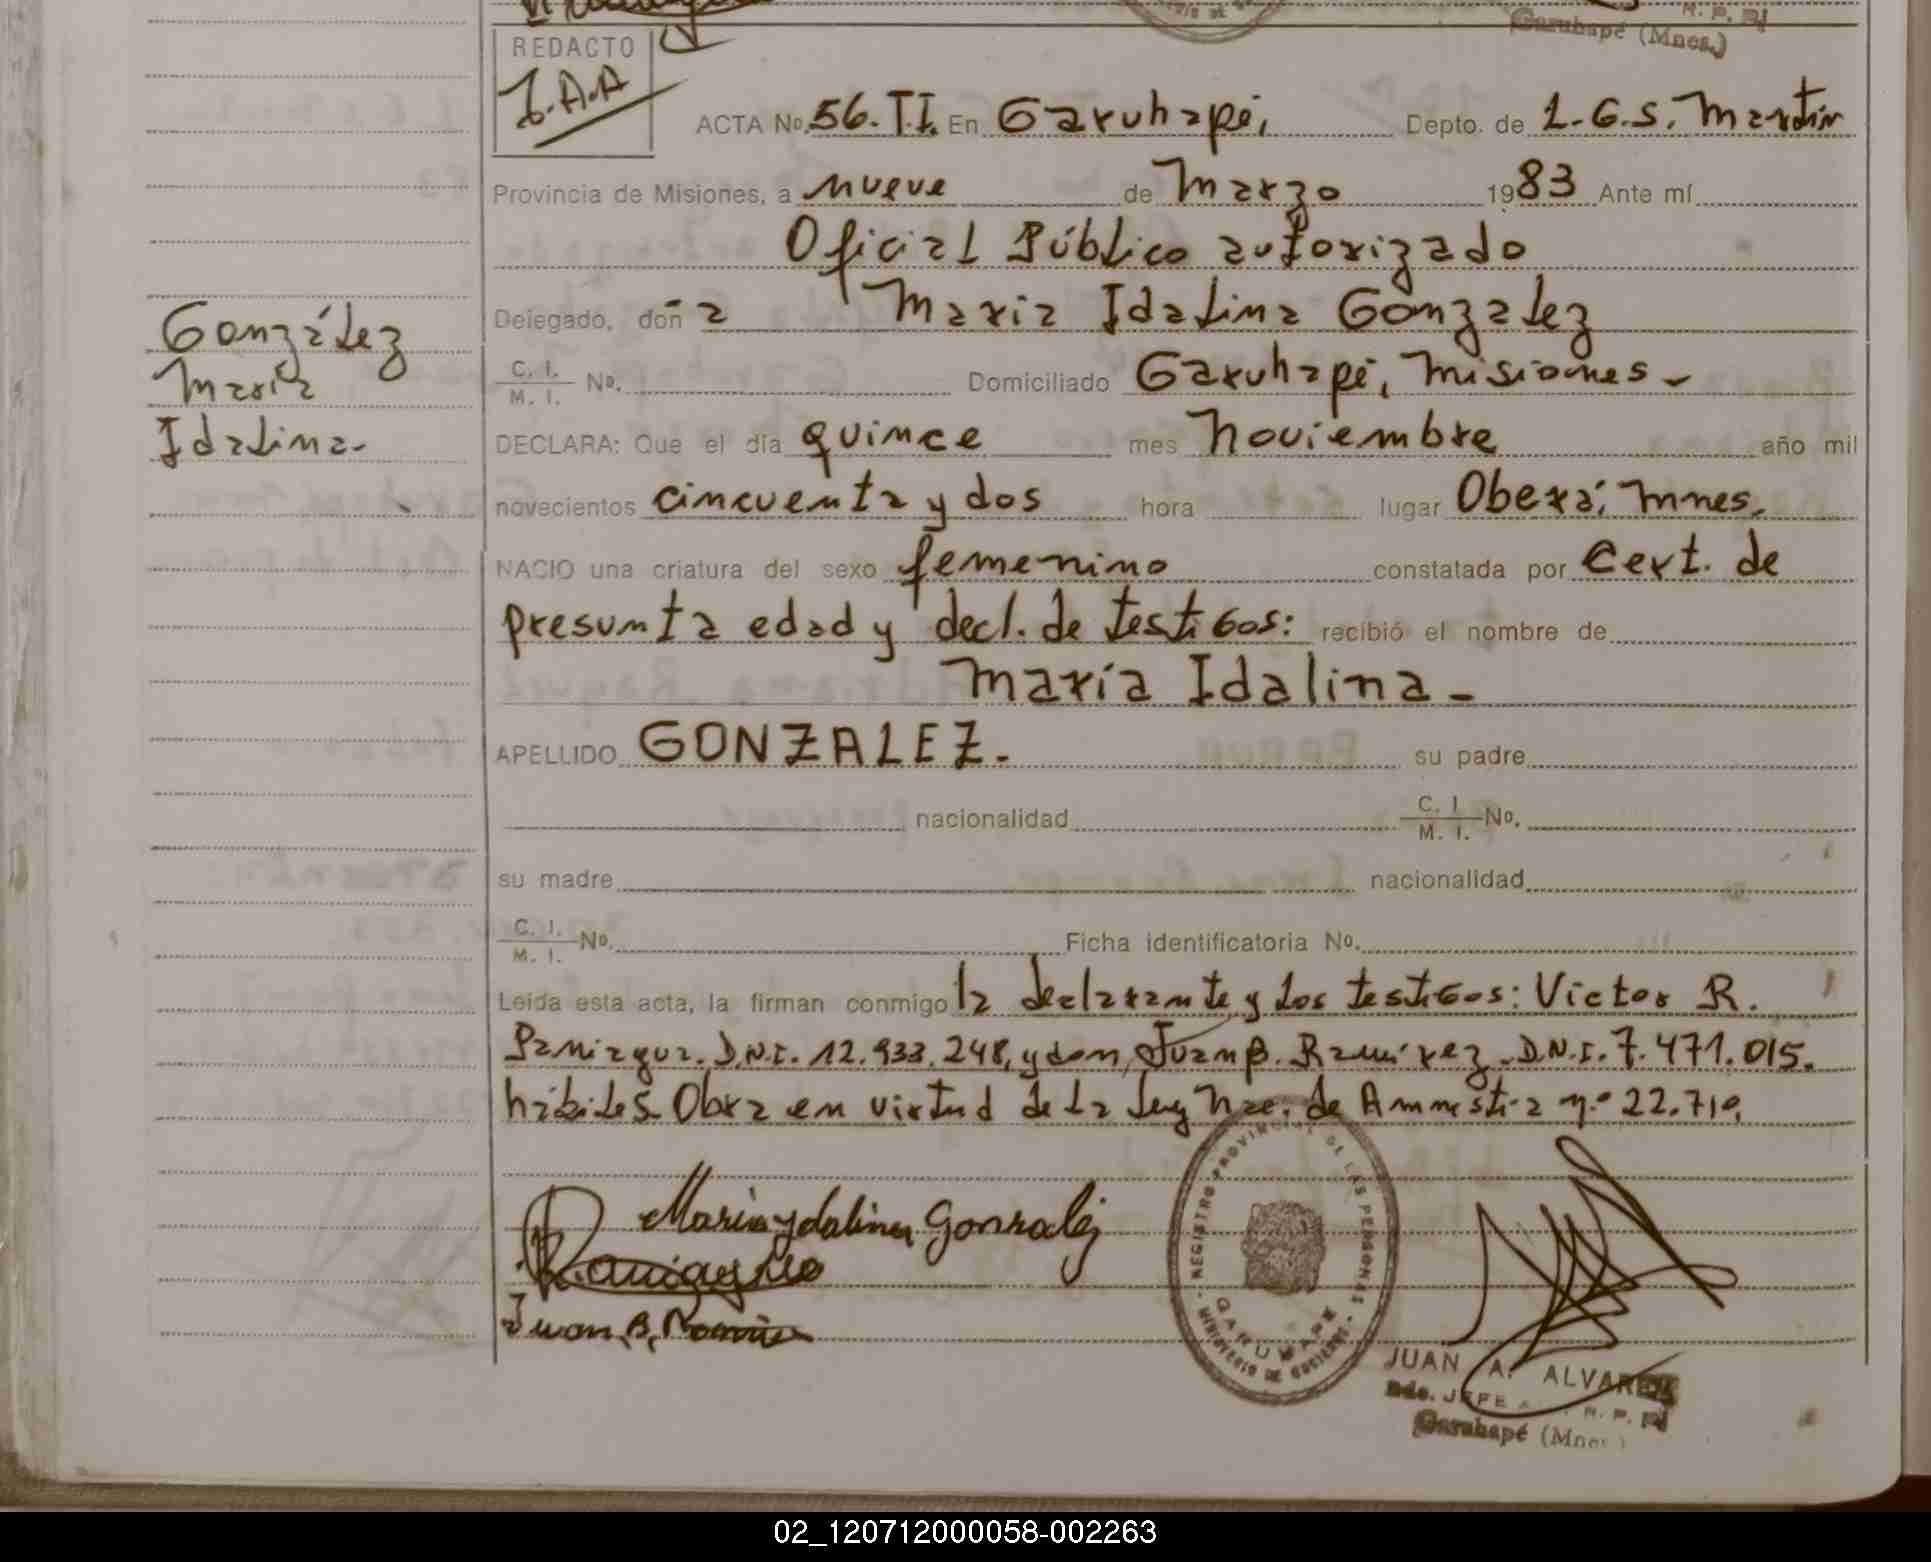 M. P. P.
Garuhapé (Mnes.)
REDACTO
J.A.A
ACTA No. 56. T.I. En Garuhapé, Depto. de L.G.S. Martín
Provincia de Misiones, a nueve de Marzo 1983 Ante mí
Oficial Público autorizado
Delegado, don a Maria Idalina Gonzalez
C. I. / M. I. No. Domiciliado Garuhapé, Misiones -
González
Maria
Idalina-
DECLARA: Que el día quince mes Noviembre año mil
novecientos cincuenta y dos hora lugar Oberá, Mnes.
NACIO una criatura del sexo femenino constatada por Cert. de
presunta edad y decl. de testigos: recibió el nombre de
María Idalina -
APELLIDO GONZALEZ. su padre
nacionalidad C. I / M. I. No.
su madre nacionalidad
C. I. / M. I. No. Ficha identificatoria No.
Leída esta acta, la firman conmigo la declarante y los testigos: Victor R.
Paniagua. D.N.I. 12.933.248, y don Juan B. Ramírez. D.N.I. 7.471.015.
hábiles. Obra en virtud de la Ley Nac. de Amnistia n.º 22.710,
Maria ydalina Gonzalez
Juan, B, Ramirez
REGISTRO PROVINCIAL DE LAS PERSONAS
GARUHAPE
MINISTERIO DE GOBIERNO
JUAN A. ALVAREZ
JEFE R. P. P.
Garuhapé (Mnes.)
02_120712000058-002263